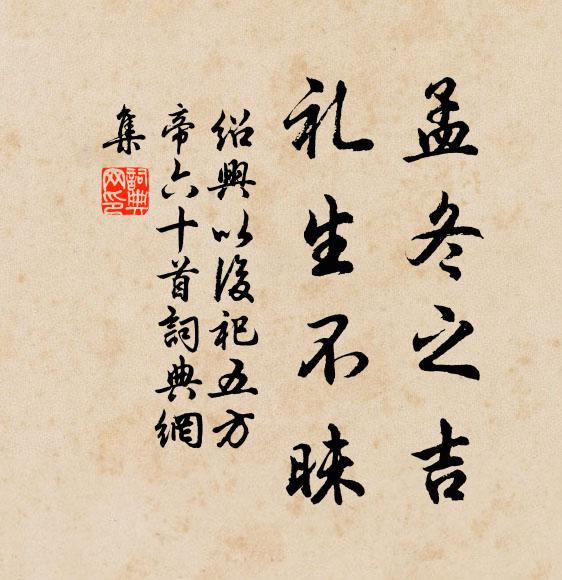 孟冬之吉
礼生不昧
紹興以後祀五方
帝六十首詞典網
集
詞典
网印